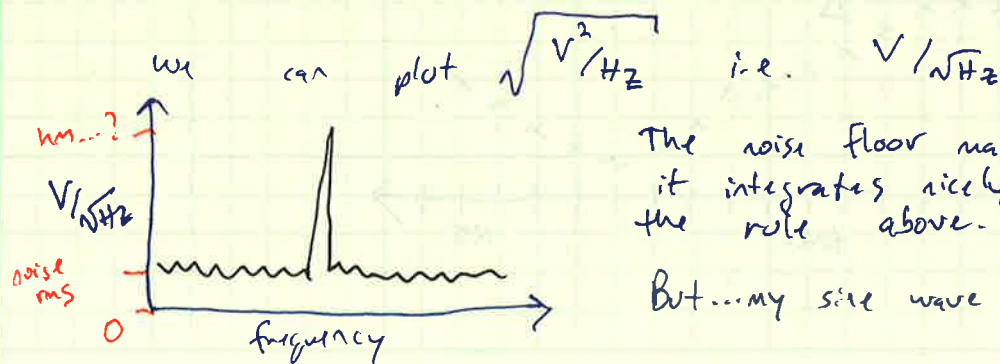 we can plot √V²/Hz i.e. V/√Hz
hm...?
V/√Hz
noise
rms
0
frequency
The noise floor
it integrates nicely
the rule above.
But...my sine wave